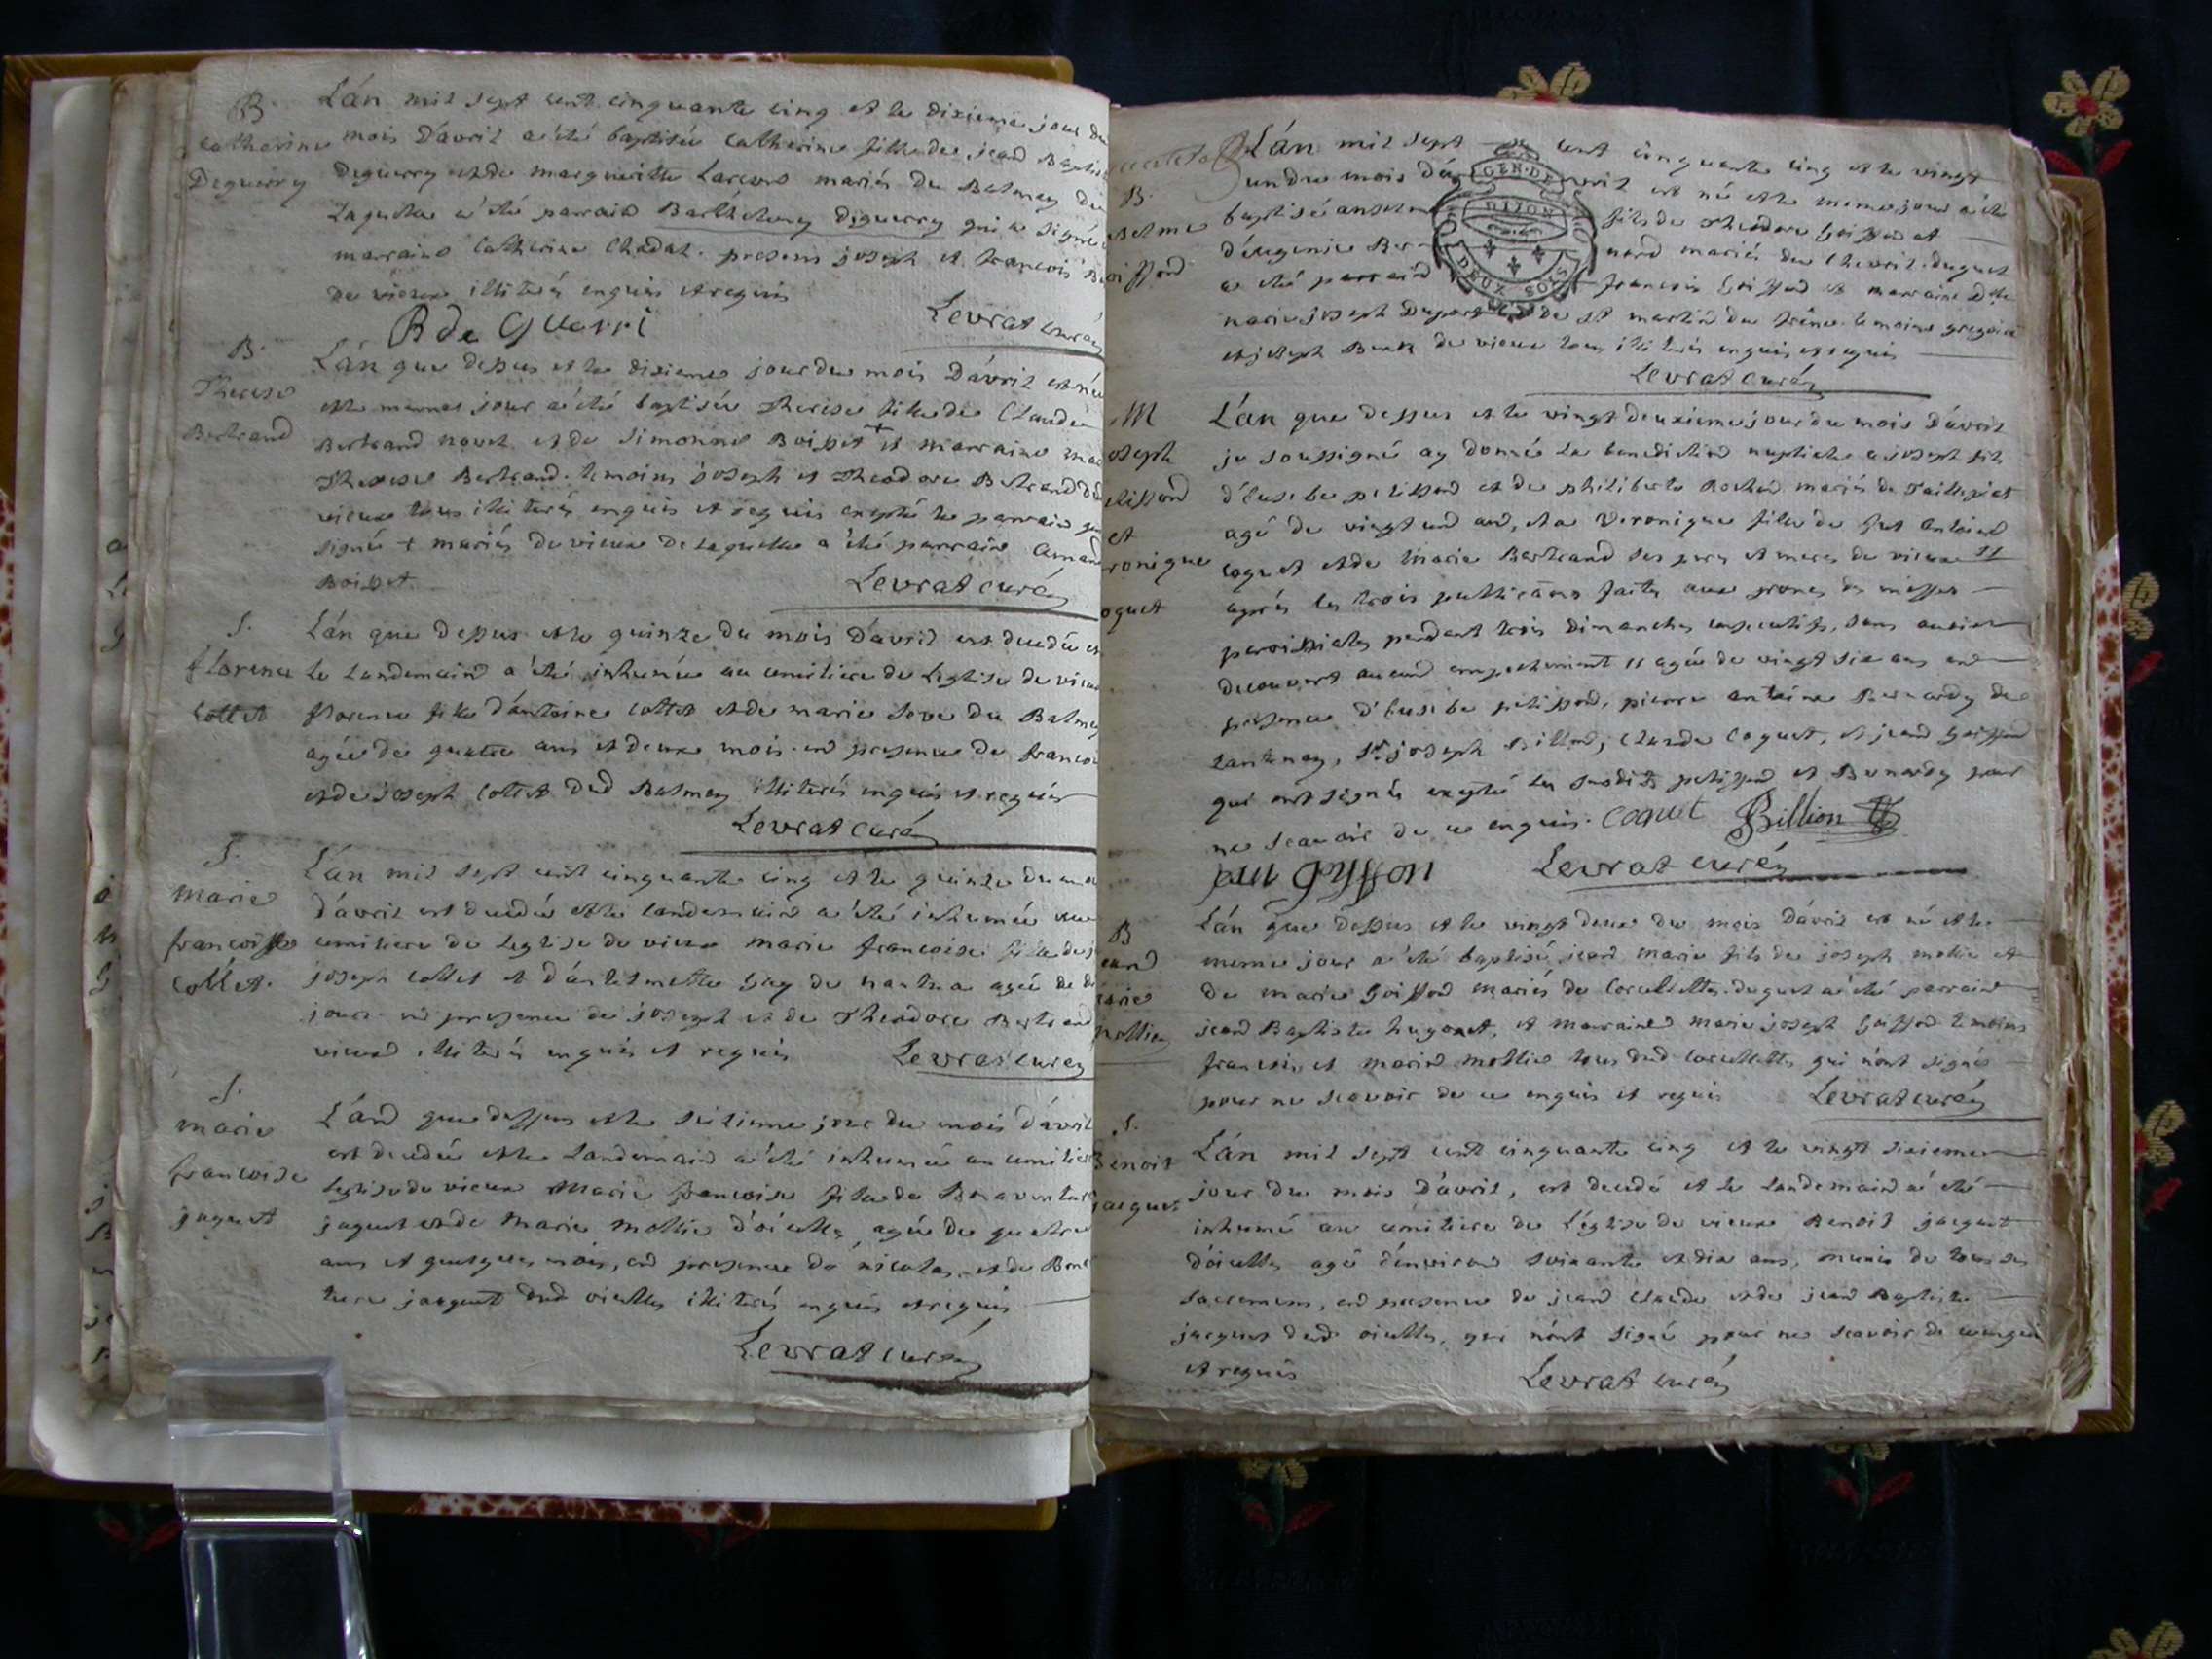 B.
Catherine
Deguerry
Lán mil sept cent cinquante cinq et le dixieme jour du
mois Dávril a été baptisée Catherine fille de jean Baptis
Deguerry et de marguerite mariés du Balmey de
Laquelle a été parrain Barthelemy Deguerry qui a signé
marraine Catherine Chadal. presens joseph et francois
de vieux illiterés enquis et requis
B de Guerri
Levrat curé
B.
Therese
Bertrand
Lán que dessus et le dixieme jour du mois Dávril est née
et le meme jour a été baptisée Therese fille de Claude
Bertrand novet et de Simonne Boisset + et marraine
Therese Bertrand. temoins joseph et Theodore Bertrand
vieux tous illiterés enquis et requis excepté le parrain
signé + mariés de vieux de Laquelle a été parrain
Boisset
Levrat curé
S.
florence
Collet
Lán que dessus et le quinze du mois Dávril est decedée et
le Landemain a été inhumée au cemitiere de Leglise de vieux
florence fille dántoine Collet et de marie du Balmey
agée de quatre ans et deux mois en presence de francois
et de joseph Collet dud Balmey illiterés enquis et requis
Levrat curé
S.
marie
francoise
Collet.
Lán mil sept cent cinquante cinq et le quinze du
dávril est decedée et le landemain a été inhumée au
cemitiere de Leglise de vieux marie francoise fille de
joseph Collet et de nantua agée de
jours en presence de joseph et de Theodore Bertrand
vieux illiterés enquis et requis
Levrat curé
S.
marie
francoise
jaquet
Lán que dessus et le seizieme jour du mois dávril
est decedée et le Landemain a été inhumée au cemitiere
Leglise de vieux Marie francoise fille de Bonaventure
jaquet et de Marie Mollie agée de quatre
ans et quelques mois, en presence de nicolas et de Bona
ture jacquet dud oielles illiterés enquis et requis
Levrat curé
B.
Lán mil sept cent cinquante cinq et le vingt
un du mois dávril est né et le meme jour a été
baptisé anselme fils de Theodore Goiffon et
déugenie Bernard mariés de Chevril. duquel
a été parrain francois Goiffon et marraine Dlle
marie joseph Duport de St martin du frêne. temoins gregoire
et joseph de vieux tous illiterés enquis et requis
GEN. DE
DIJON
DEUX SOLS
Levrat curé
M
oseph
elisson
et
ronique
oquet
Lán que dessus et le vingt deuxieme jour du mois Dávril
je soussigné ay donné La benediction nuptiale a joseph fils
d'Eusebe pelisson et de philiberte mariés de Taillissiat
agé de vingt un an, et a Veronique fille de feu antoine
coquet et de Marie Bertrand ses pere et mere de vieux
après les trois publications faites aux prones des messes
paroissiales pendant trois dimanches consecutifs, sans avoir
decouvert aucun empechement agée de vingt six ans en
presence d'Eusebe pelisson, pierre antoine Bernardy de
Lantenay, Sr. joseph Billion, Claude Coquet, et jean Goiffon
qui ont signés excepté les susdits pelisson et Bernardy pour
ne scavoir de ce enquis. coquet Billion
jan Gyffon
Levrat curé
B
Lán que dessus et le vingt deux du mois dávril est né et le
meme jour a été baptisé jean marie fils de joseph mollie et
de marie Goiffon mariés de Corcelette. duquel a été parrain
jean Baptiste hugonet, et marraine marie joseph Goiffon temoins
francois et marin mollie tous dud Corcelette qui nónt signés
pour ne scavoir de ce enquis et requis
Levrat curé
S.
Benoit
jacquet
Lán mil sept cent cinquante cinq et le vingt sixieme
jour du mois Dávril, est decedé et le Landemain a été
inhumé au cémitiere de Léglise de vieux Benoit jacquet
dóielles agé dénviron soixante et dix ans, munis de tous ses
Sacremens, en presence de jean Claude et de jean Baptiste
jacquet dud oielles, qui nónt signé pour ne scavoir de ce enquis
et requis
Levrat curé